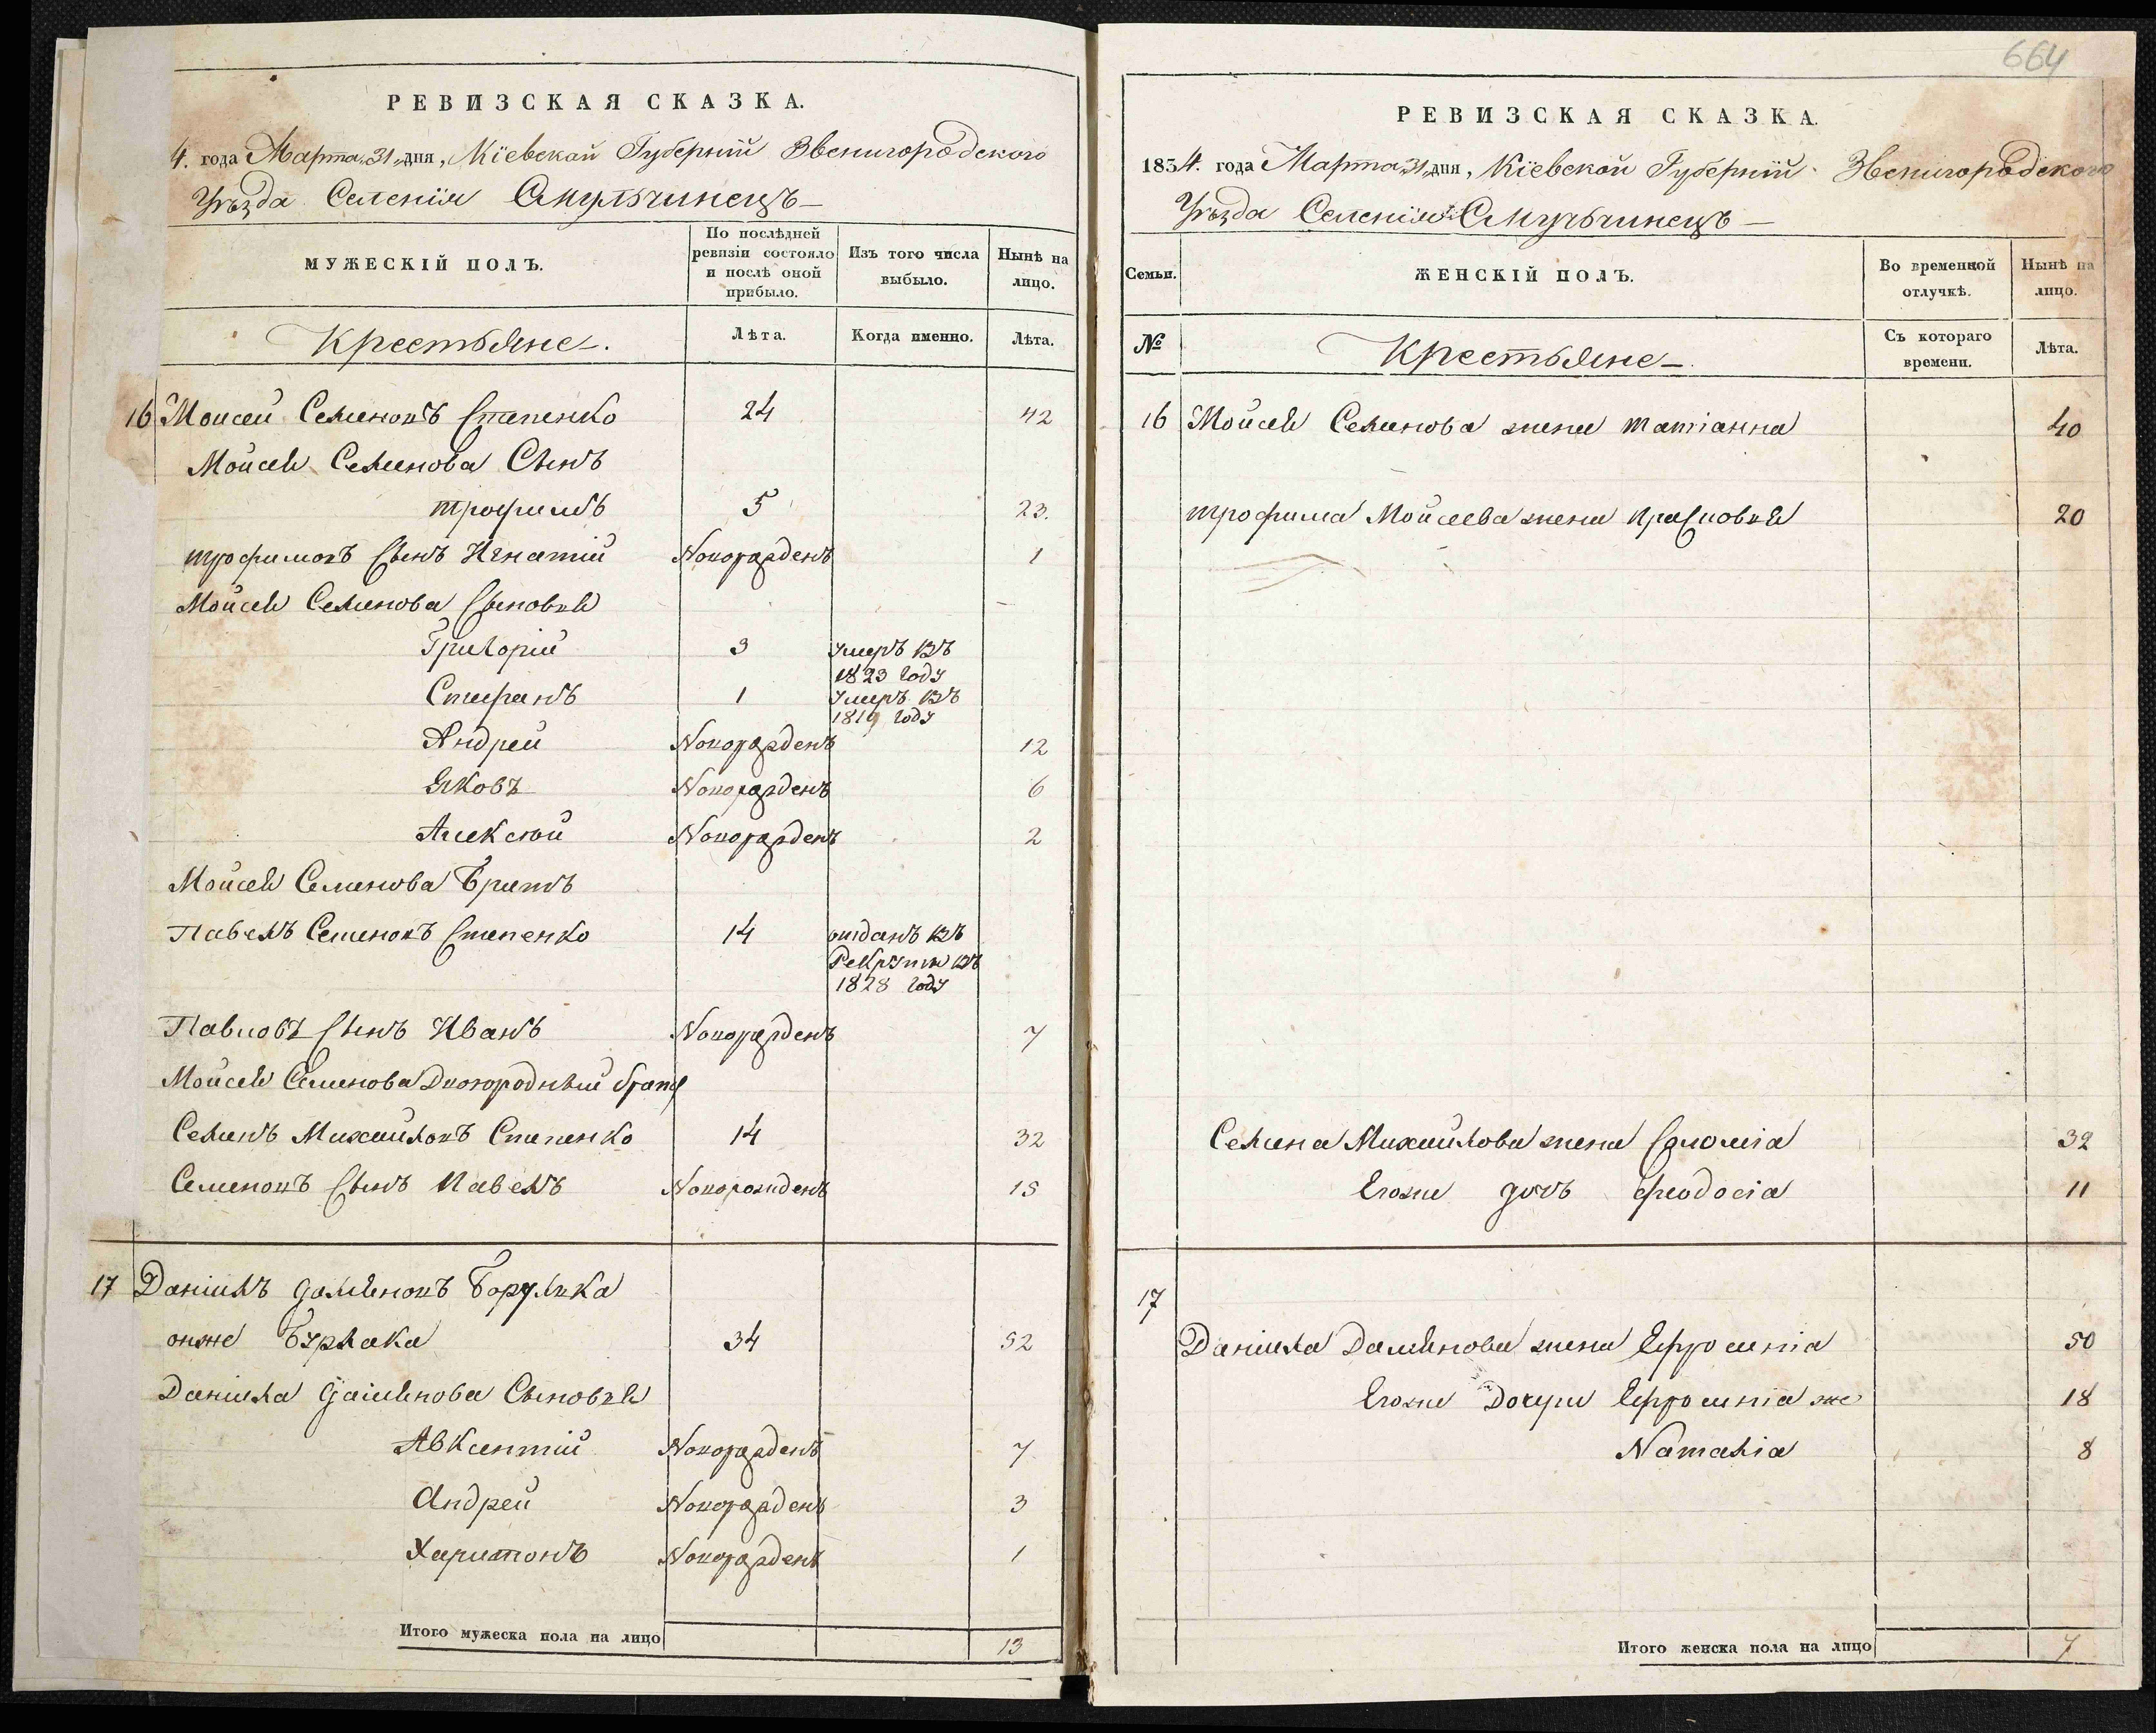 РЕВИЗСКАЯ СКАЗКА.
4. года Марта 31 дня, Кіевской Губерніи Звенигородского
Уѣзда Селенія Смульчинецъ
МУЖЕСКІЙ ПОЛЪ.
По послѣдней ревизіи состояло и послѣ оной прибыло.
Изъ того числа выбыло.
Нынѣ на лицо.
Крестьяне.
Лѣта.
Когда именно.
Лѣта.
16 Моисей Семеновъ Степенко 24 42
Мойсея Семенова Сынъ
трофимъ 5 23.
трофимовъ Сынъ Игнатій Новорожденъ 1
Мойсея Семенова Сыновья
Григорій 3 Умеръ въ 1823 году
Стефанъ 1 Умеръ въ 1819 году
Андрей Новорожденъ 12
Яковъ Новорожденъ 6
Алексѣй Новорожденъ 2
Мойсея Семенова Братъ
Павелъ Семеновъ Степенко 14 отданъ въ Рекруты въ 1828 году
Павловъ Сынъ Иванъ Новорожденъ 7
Мойсея Семенова Двоюродный братъ
Семенъ Михайловъ Степенко 14 32
Семеновъ Сынъ Павелъ Новорожденъ 15
17 Даніилъ Даміяновъ Борулька
онже Бурлака 34 52
Даніила Даміянова Сыновья
Авксентій Новорожденъ 7
Андрей Новорожденъ 3
Харитонъ Новорожденъ 1
Итого мужеска пола на лицо 13
664
РЕВИЗСКАЯ СКАЗКА.
1834. года Марта 31 дня, Кіевской Губерніи Звенигородского
Уѣзда Селенія Смульчинецъ
Семьи.
ЖЕНСКІЙ ПОЛЪ.
Во временной отлучкѣ.
Нынѣ на лицо.
№
Крестьяне
Съ котораго времени.
Лѣта.
16 Мойсея Семенова жена татіанна 40
трофима Мойсеева жена Прасковья 20
Семена Михайлова жена Соломіа 32
Егоже дочь Феодосіа 11
17
Даніила Даміянова жена Ефросиніа 50
Егоже Дочери Ефросиніа же 18
Наталіа 8
Итого женска пола на лицо 7